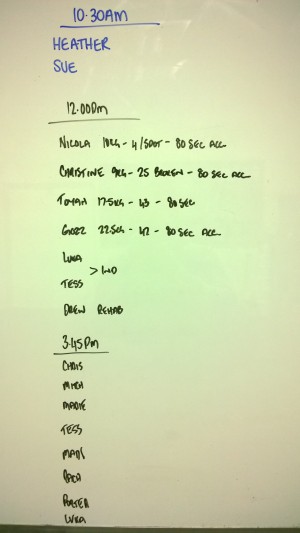 10.30AM
HEATHER
SUE
12.00pm
NICOLA 10KG - 4/SPOT - 80 SEC ALL
CHRISTINE 9KG - 25 BROKEN - 80 SEC ALL
TOYAH 17.5KG - 43 - 80 SEC
GOZZ 22.5KG - 42 - 80 SEC ALL
LUKA
> WO
TESS
DREW REHAB
3.45pm
CHRIS
MITCH
MADIE
TESS
PORTER
LUKA